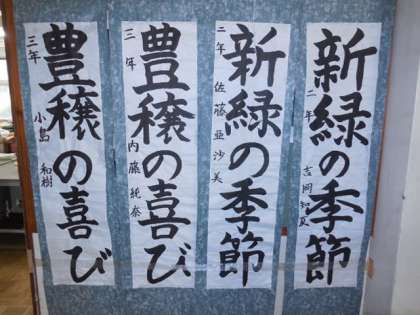 新緑の季節
二年 吉岡知夏
新緑の季節
二年 佐藤亜沙美
豊穣の喜び
三年 内藤純奈
豊穣の喜び
三年 小島和樹